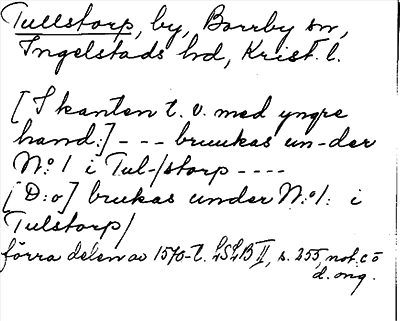 Tullstorp, by, Borrby sn,
Ingelstads hd, Krist. l.
[I kanten t. v. med yngre
hand:] --- bruukas un-der
No: 1 i Tul-/storp ----
[D:o] brukas under No: 1: i
Tulstorp/
förra delen av 1570-t. LSLB II, s. 255, not. c o
d. ang.